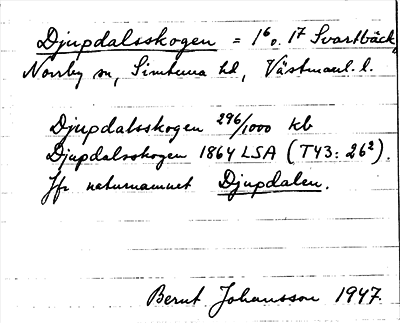 Djupdalsskogen = 1⁶ o. 1⁷ Svartbäck,
Norrby sn, Simtuna hd, Västmanl. l.
Djupdalsskogen 296/1000 kb
Djupdalsskogen 1864 LSA (T43: 26²).
Jfr naturnamnet Djupdalen.
Bernt Johansson 1947.